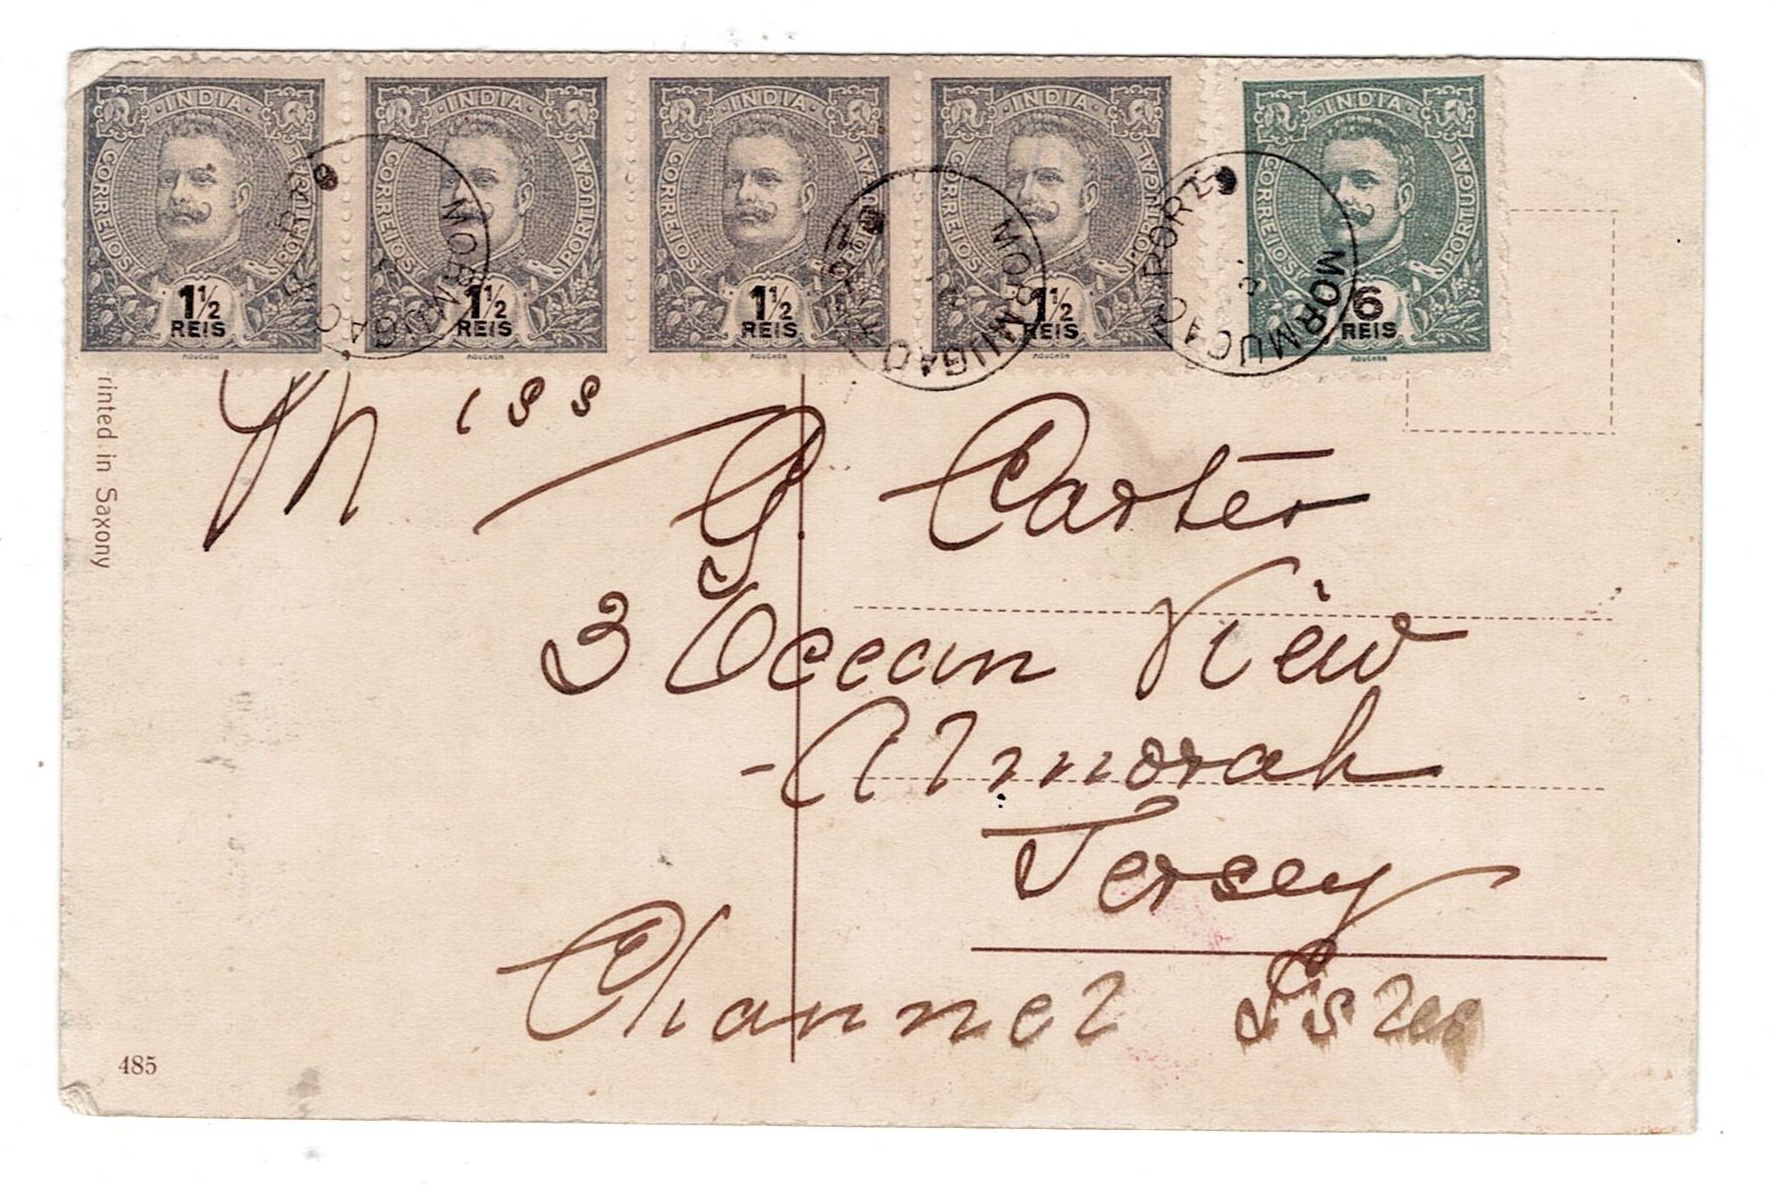 INDIA
CORREIOS PORTUGAL
1½
REIS
MOUCHON
INDIA
CORREIOS PORTUGAL
1½
REIS
INDIA
CORREIOS PORTUGAL
1½
REIS
MOUCHON
INDIA
CORREIOS PORTUGAL
1½
REIS
MOUCHON
INDIA
CORREIOS PORTUGAL
6
REIS
MOUCHON
MORMUGAO
MORMUGAO
MORMUGAO
Miss G Carter
3 Ocean View
Almorah
Jersey
Channel Isles
rinted in Saxony
485